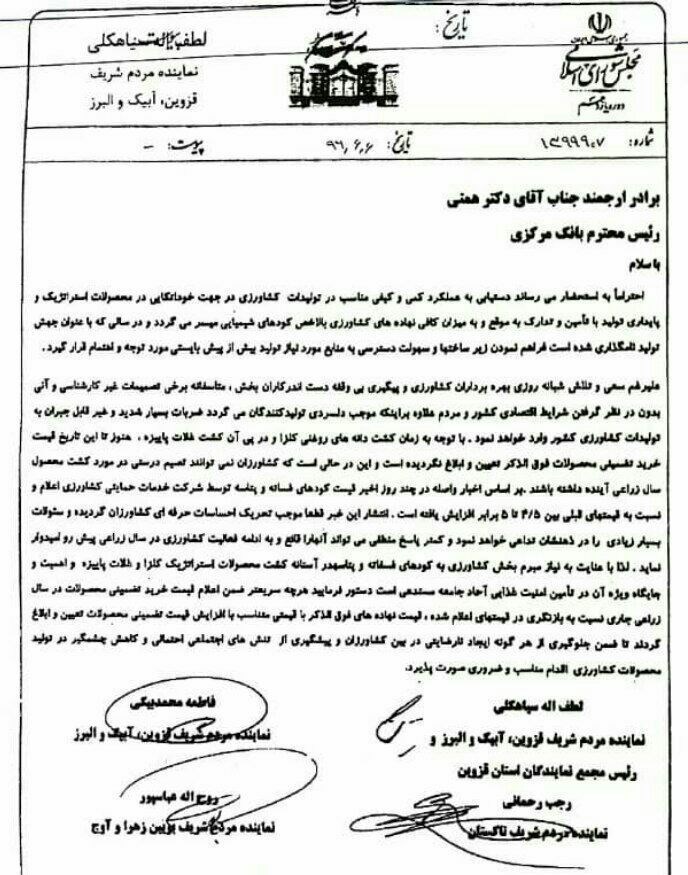 جمهوری اسلامی ایران
مجلس شورای اسلامی
دوره یازدهم
تاریخ:
لطف‌اله سیاهکلی
نماینده مردم شریف
قزوین، آبیک و البرز
شماره: ۱۳۹۹۹۰۷
تاریخ: ۹۹,۶,۶
پیوست: -
برادر ارجمند جناب آقای دکتر همتی
رئیس محترم بانک مرکزی
با سلام
احتراماً به استحضار می رساند دستیابی به عملکرد کمی و کیفی مناسب در تولیدات کشاورزی در جهت خوداتکایی در محصولات استراتژیک و
پایداری تولید با تأمین و تدارک به موقع و به میزان کافی نهاده های کشاورزی بالاخص کودهای شیمیایی میسر می گردد و در سالی که با عنوان جهش
تولید نامگذاری شده است فراهم نمودن زیر ساختها و سهولت دسترسی به منابع مورد نیاز تولید بیش از پیش بایستی مورد توجه و اهتمام قرار گیرد .
علیرغم سعی و تلاش شبانه روزی بهره برداران کشاورزی و پیگیری بی وقفه دست اندرکاران بخش ، متاسفانه برخی تصمیمات غیر کارشناسی و آنی
بدون در نظر گرفتن شرایط اقتصادی کشور و مردم علاوه براینکه موجب دلسردی تولیدکنندگان می گردد ضربات بسیار شدید و غیر قابل جبران به
تولیدات کشاورزی کشور وارد خواهد نمود . با توجه به زمان کشت دانه های روغنی کلزا و در پی آن کشت غلات پاییزه ، هنوز تا این تاریخ قیمت
خرید تضمینی محصولات فوق الذکر تعیین و ابلاغ نگردیده است و این در حالی است که کشاورزان نمی توانند تصیم درستی در مورد کشت محصول
سال زراعی آینده داشته باشند .بر اساس اخبار واصله در چند روز اخیر قیمت کودهای فسفاته و پتاسه توسط شرکت خدمات حمایتی کشاورزی اعلام و
نسبت به قیمتهای قبلی بین ۴/۵ تا ۵ برابر افزایش یافته است . انتشار این خبر قطعا موجب تحریک احساسات حرفه ای کشاورزان گردیده و سئوالات
بسیار زیادی را در ذهنشان تداعی خواهد نمود و کمتر پاسخ منطقی می تواند آنهارا قانع و به ادامه فعالیت کشاورزی در سال زراعی پیش رو امیدوار
نماید . لذا با عنایت به نیاز مبرم بخش کشاورزی به کودهای فسفاته و پتاسهدر آستانه کشت محصولات استراتژیک کلزا و غلات پاییزه و اهمیت و
جایگاه ویژه آن در تأمین امنیت غذایی آحاد جامعه مستدعی است دستور فرمایید هرچه سریعتر ضمن اعلام قیمت خرید تضمینی محصولات در سال
زراعی جاری نسبت به بازنگری در قیمتهای اعلام شده ، قیمت نهاده های فوق الذکر با قیمتی متناسب با افزایش قیمت تضمینی محصولات تعیین و ابلاغ
گردند تا ضمن جلوگیری از هر گونه ایجاد نارضایتی در بین کشاورزان و پیشگیری از تنش های اجتماعی احتمالی و کاهش چشمگیر در تولید
محصولات کشاورزی اقدام مناسب و ضروری صورت پذیرد.
لطف اله سیاهکلی
نماینده مردم شریف قزوین، آبیک و البرز و
رئیس مجمع نمایندگان استان قزوین
فاطمه محمدبیگی
نماینده مردم شریف قزوین، آبیک و البرز
رجب رحمانی
نماینده مردم شریف تاکستان
روح اله عباسپور
نماینده مردم شریف بویین زهرا و آوج